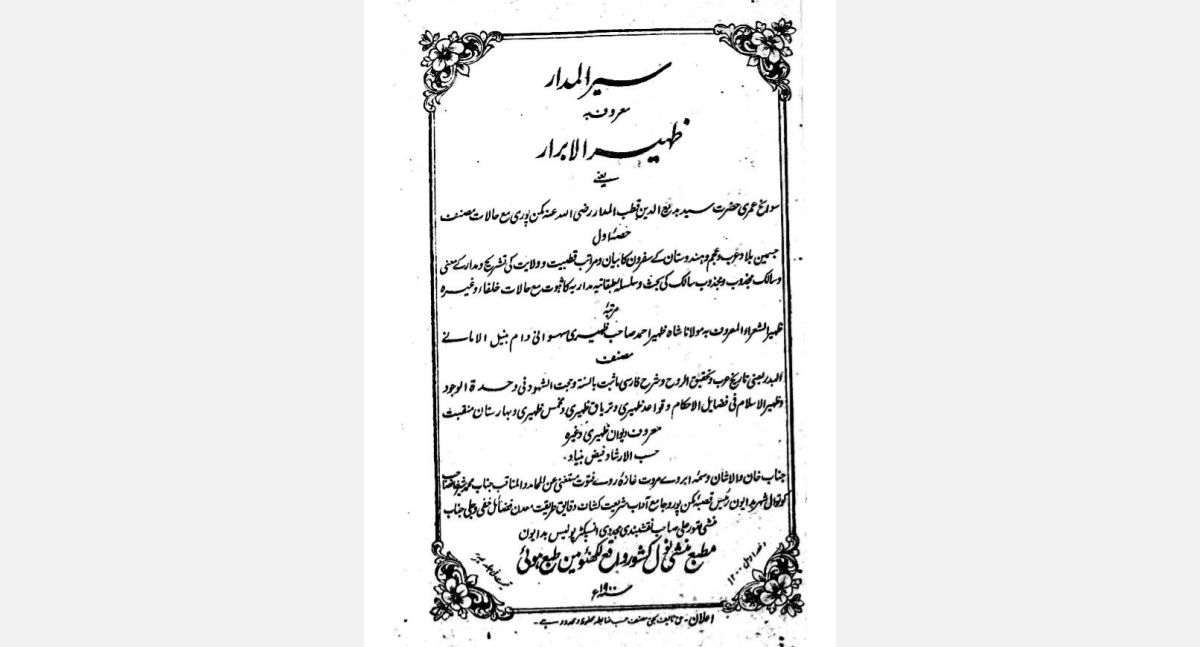 سیر المدار
معروف بہ
ظہیر الابرار
یعنے
سوانح عمری حضرت سید بدیع الدین قطب المدار رضی اللہ عنہ مکن پوری مع حالات مصنف
حصۂ اول
جسمین بلاد عرب و عجم و ہندوستان کے سفرون کا بیان و مراتب قطبیت و ولایت کی تشریح و مدار کے معنی
و سالک مجذوب و مجذوب سالک کی بحث و سلسلہ طبقاتیہ مداریہ کا ثبوت مع حالات خلفاء وغیرہ
مرتبۂ
ظہیر الشعراء المعروف بہ مولانا شاہ ظہیر احمد صاحب ظہیری سہسوانی دام بنیل الامانے
مصنف
البدر یعنی تاریخ عرب و تحقیق الروح و شرح فارسی ما ثبت بالسنۃ و حجت الشہود فی وحدۃ الوجود
و ظہیر الاسلام فی فضایل الاحکام و قواعد ظہیری و تریاق ظہیری و مخمس ظہیری و بہارستان منقبت
معروف دیوان ظہیری وغیرہ
حسب الارشاد فیض بنیاد
جناب خان والاشان وسمۂ ابروے مروت غازۂ روے فتوت مستغنی عن المحامد والمناقب جناب محمد صاحب
کوتوال شہر بدایون رئیس قصبۂ مکن پور و جامع آداب شریعت کشاف دقایق طریقت معدن فضائل خفی و جلی جناب
منشی علی صاحب نقشبندی مجددی انسپکٹر پولیس بدایون
مطبع منشی نول کشور واقع لکھنؤ مین طبع ہوئی
سنہ ۱۹۰۰ء
دفعہ اول ۱۲۰۰
قیمت فی جلد
اعلان - حق تالیف بحق مصنف حسب ضابطہ محفوظ و محدود ہے -